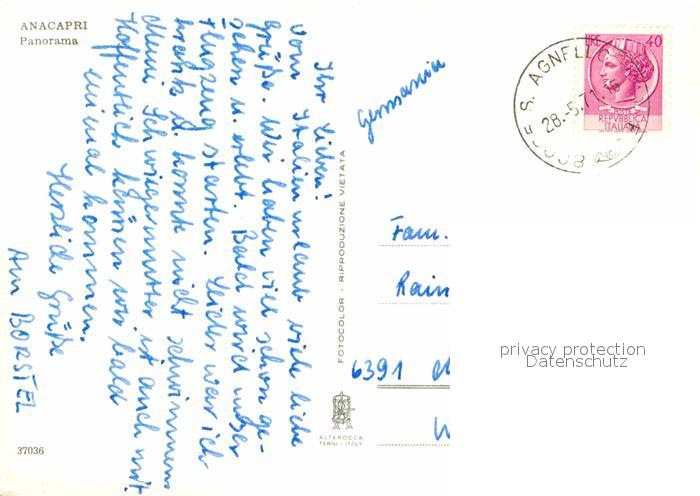 ANACAPRI
Panorama
Ihr Lieben!
Vom Italienurlaub viele liebe
Grüße. Wir haben viel schon ge-
sehen u. erlebt. Bald wird unser
Flugzeug starten. Leider war ich
krank u. konnte nicht schwimmen
Meine Schwiegermutter ist auch mit.
Hoffentlich können wir bald
einmal kommen.
Herzliche Grüße
Am BORSTEL
37036
FOTOCOLOR - RIPRODUZIONE VIETATA
ALTEROCCA
TERNI - ITALY
Germania
LIRE 40
POSTE
REPVBBLICA
ITALIANA
S. AGNELLO
28.-5.71
Fam.
Rain
6391
privacy protection
Datenschutz